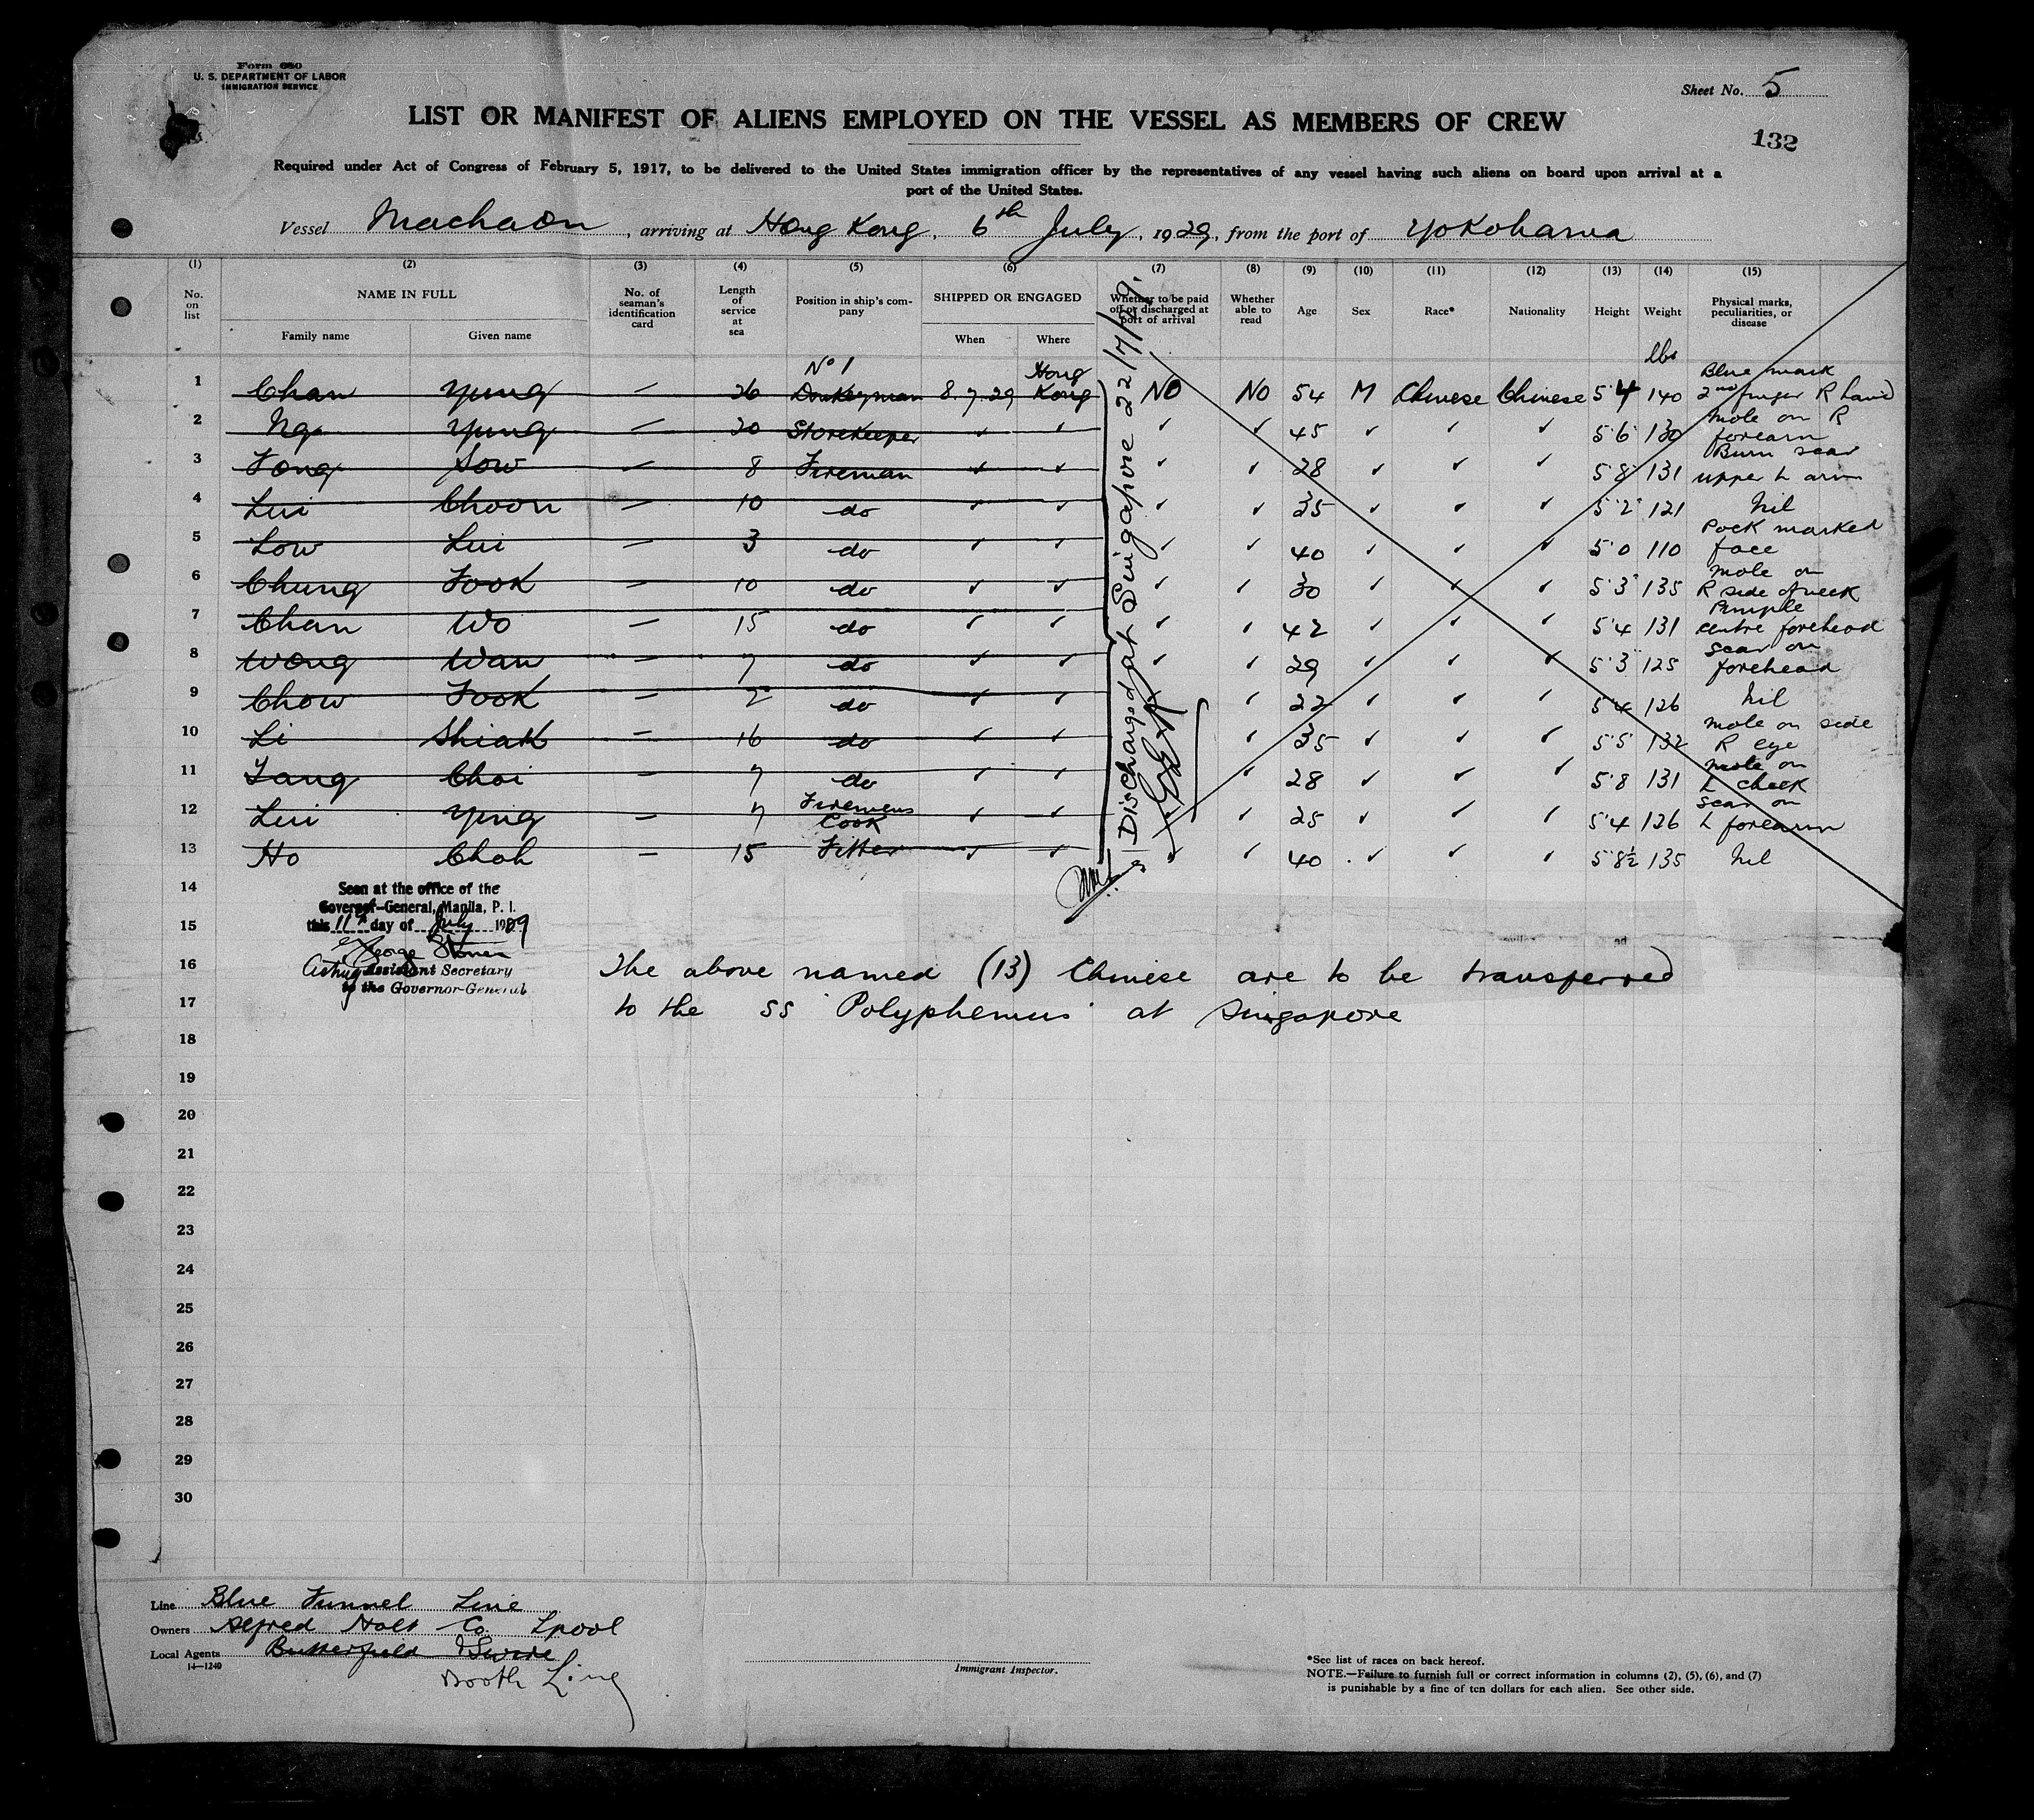 Form 680
U. S. DEPARTMENT OF LABOR
IMMIGRATION SERVICE
Sheet No. 5
LIST OR MANIFEST OF ALIENS EMPLOYED ON THE VESSEL AS MEMBERS OF CREW
132
Required under Act of Congress of February 5, 1917, to be delivered to the United States immigration officer by the representatives of any vessel having such aliens on board upon arrival at a
port of the United States.
Vessel Machaon, arriving at Hong Kong, 6th July, 1929, from the port of Yokohama
(1) (2) (3) (4) (5) (6) (7) (8) (9) (10) (11) (12) (13) (14) (15)
No. on list
NAME IN FULL
Family name
Given name
No. of seaman's identification card
Length of service at sea
Position in ship's company
SHIPPED OR ENGAGED
When
Where
Whether to be paid off or discharged at port of arrival
Whether able to read
Age
Sex
Race*
Nationality
Height
Weight
Physical marks, peculiarities, or disease
lbs
1 Chan Yung — 26 No 1 Donkeyman 8.7.29 Hong Kong NO NO 54 M Chinese Chinese 5'4 140 Blue mark 2nd finger R hand
2 Ng Yung — 20 Storekeeper ✓ ✓ ✓ ✓ 45 ✓ ✓ ✓ 5'6" 130 mole on R forearm
3 Tong Sow — 8 Fireman ✓ ✓ ✓ ✓ 28 ✓ ✓ ✓ 5'8" 131 Burn scar upper L arm
4 Lui Choon — 10 do ✓ ✓ ✓ ✓ 35 ✓ ✓ ✓ 5'2" 121 Nil
5 Low Lui — 3 do ✓ ✓ ✓ ✓ 40 ✓ ✓ ✓ 5'0 110 Pock marked face
6 Chung Fook — 10 do ✓ ✓ ✓ ✓ 30 ✓ ✓ ✓ 5'3" 135 mole on R side of neck
7 Chan Wo — 15 do ✓ ✓ ✓ ✓ 42 ✓ ✓ ✓ 5'4 131 Pimple centre forehead
8 Wong Wan — 7 do ✓ ✓ ✓ ✓ 29 ✓ ✓ ✓ 5'3" 125 scar on forehead
9 Chow Fook — 2 do ✓ ✓ ✓ 22 ✓ ✓ ✓ 5'4 126 Nil
10 Li Shiak — 16 do ✓ ✓ ✓ 35 ✓ ✓ ✓ 5'5 132 mole on side R eye
11 Tang Choi — 7 do ✓ ✓ ✓ 28 ✓ ✓ ✓ 5'8 131 mole on L cheek
12 Lui Ying — 7 Firemens Cook ✓ ✓ ✓ 25 ✓ ✓ ✓ 5'4 126 scar on L forearm
13 Ho Choh — 15 Fitter ✓ ✓ ✓ ✓ 40 ✓ ✓ ✓ 5'8½ 135 Nil
Discharged at Singapore 22/7/29.
14
Seen at the office of the
Governor-General, Manila, P. I.
15
this 11th day of July 1929
George
16
Acting Assistant Secretary
to the Governor-General
The above named (13) Chinese are to be transferred
17
to the SS Polyphemus at Singapore
18
19
20
21
22
23
24
25
26
27
28
29
30
Line Blue Funnel Line
Owners Alfred Holt Co. Lpool
Local Agents Butterfield & Swire
Booth Line
14—1240
Immigrant Inspector.
*See list of races on back hereof.
NOTE.—Failure to furnish full or correct information in columns (2), (5), (6), and (7)
is punishable by a fine of ten dollars for each alien. See other side.